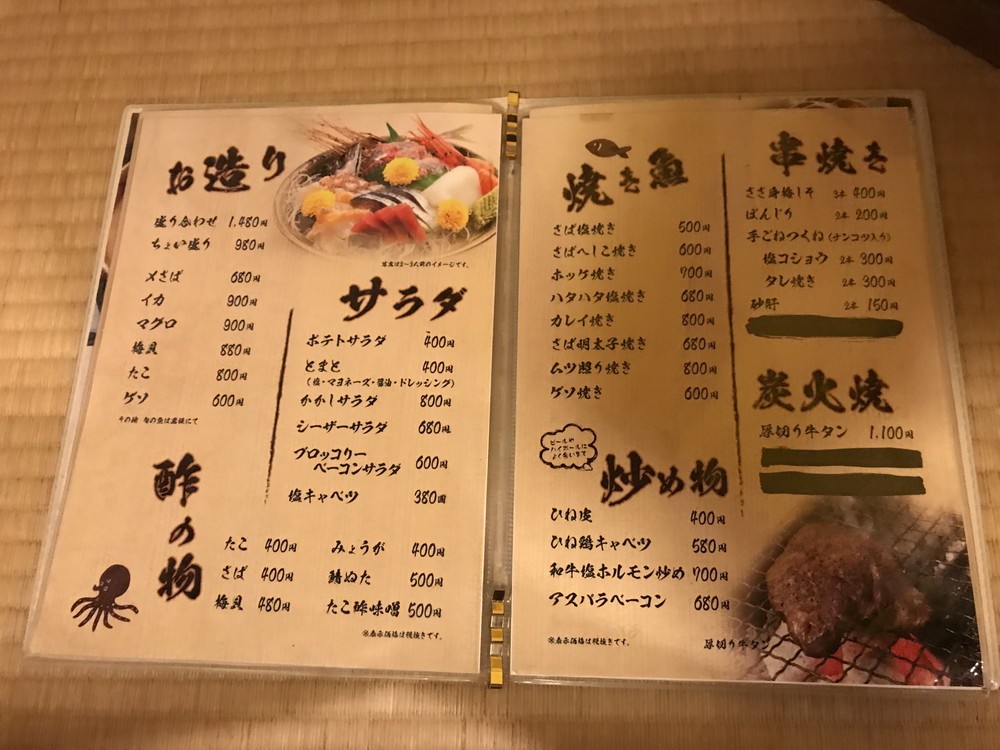 お造り
盛り合わせ 1,480円
ちょい盛り 980円
〆さば 680円
イカ 900円
マグロ 900円
梅貝 880円
たこ 800円
ゲソ 600円
その他 旬の魚は黒板にて
写真は2〜3人前のイメージです。
サラダ
ポテトサラダ 400円
とまと 400円
(塩・マヨネーズ・醤油・ドレッシング)
かかしサラダ 800円
シーザーサラダ 680円
ブロッコリー
ベーコンサラダ 600円
塩キャベツ 380円
酢の物
たこ 400円
さば 400円
梅貝 480円
みょうが 400円
鯖ぬた 500円
たこ酢味噌 500円
※表示価格は税抜きです。
焼き魚
さば塩焼き 500円
さばへしこ焼き 600円
ホッケ焼き 700円
ハタハタ塩焼き 680円
カレイ焼き 800円
さば明太子焼き 680円
ムツ照り焼き 800円
ゲソ焼き 600円
ビールや
ハイボールに
よく合います
炒め物
ひね皮 400円
ひね鶏キャベツ 580円
和牛塩ホルモン炒め 700円
アスパラベーコン 680円
※表示価格は税抜きです。
串焼き
ささ身梅しそ 3本 400円
ぼんじり 2本 200円
手ごねつくね(ナンコツ入り)
塩コショウ 2本 300円
タレ焼き 2本 300円
砂肝 2本 150円
炭火焼
厚切り牛タン 1,100円
厚切り牛タン